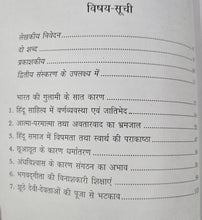 विषय-सूची
लेखकीय निवेदन
दो शब्द
प्रकाशकीय
द्वितीय संस्करण के उपलक्ष्य में
भारत की गुलामी के सात कारण
1. हिंदू साहित्य में वर्णव्यवस्था एवं जातिभेद
2. आत्मा-परमात्मा तथा अवतारवाद का भ्रमजाल
3. हिंदू समाज में विषमता तथा स्वार्थ की पराकाष्ठा
4. छुआछूत के कारण धर्मांतरण
5. अंधविश्वास के कारण संगठन का अभाव
6. भगवद्गीता की विनाशकारी शिक्षाएं
7. झूठे देवी-देवताओं की पूजा से भटकाव